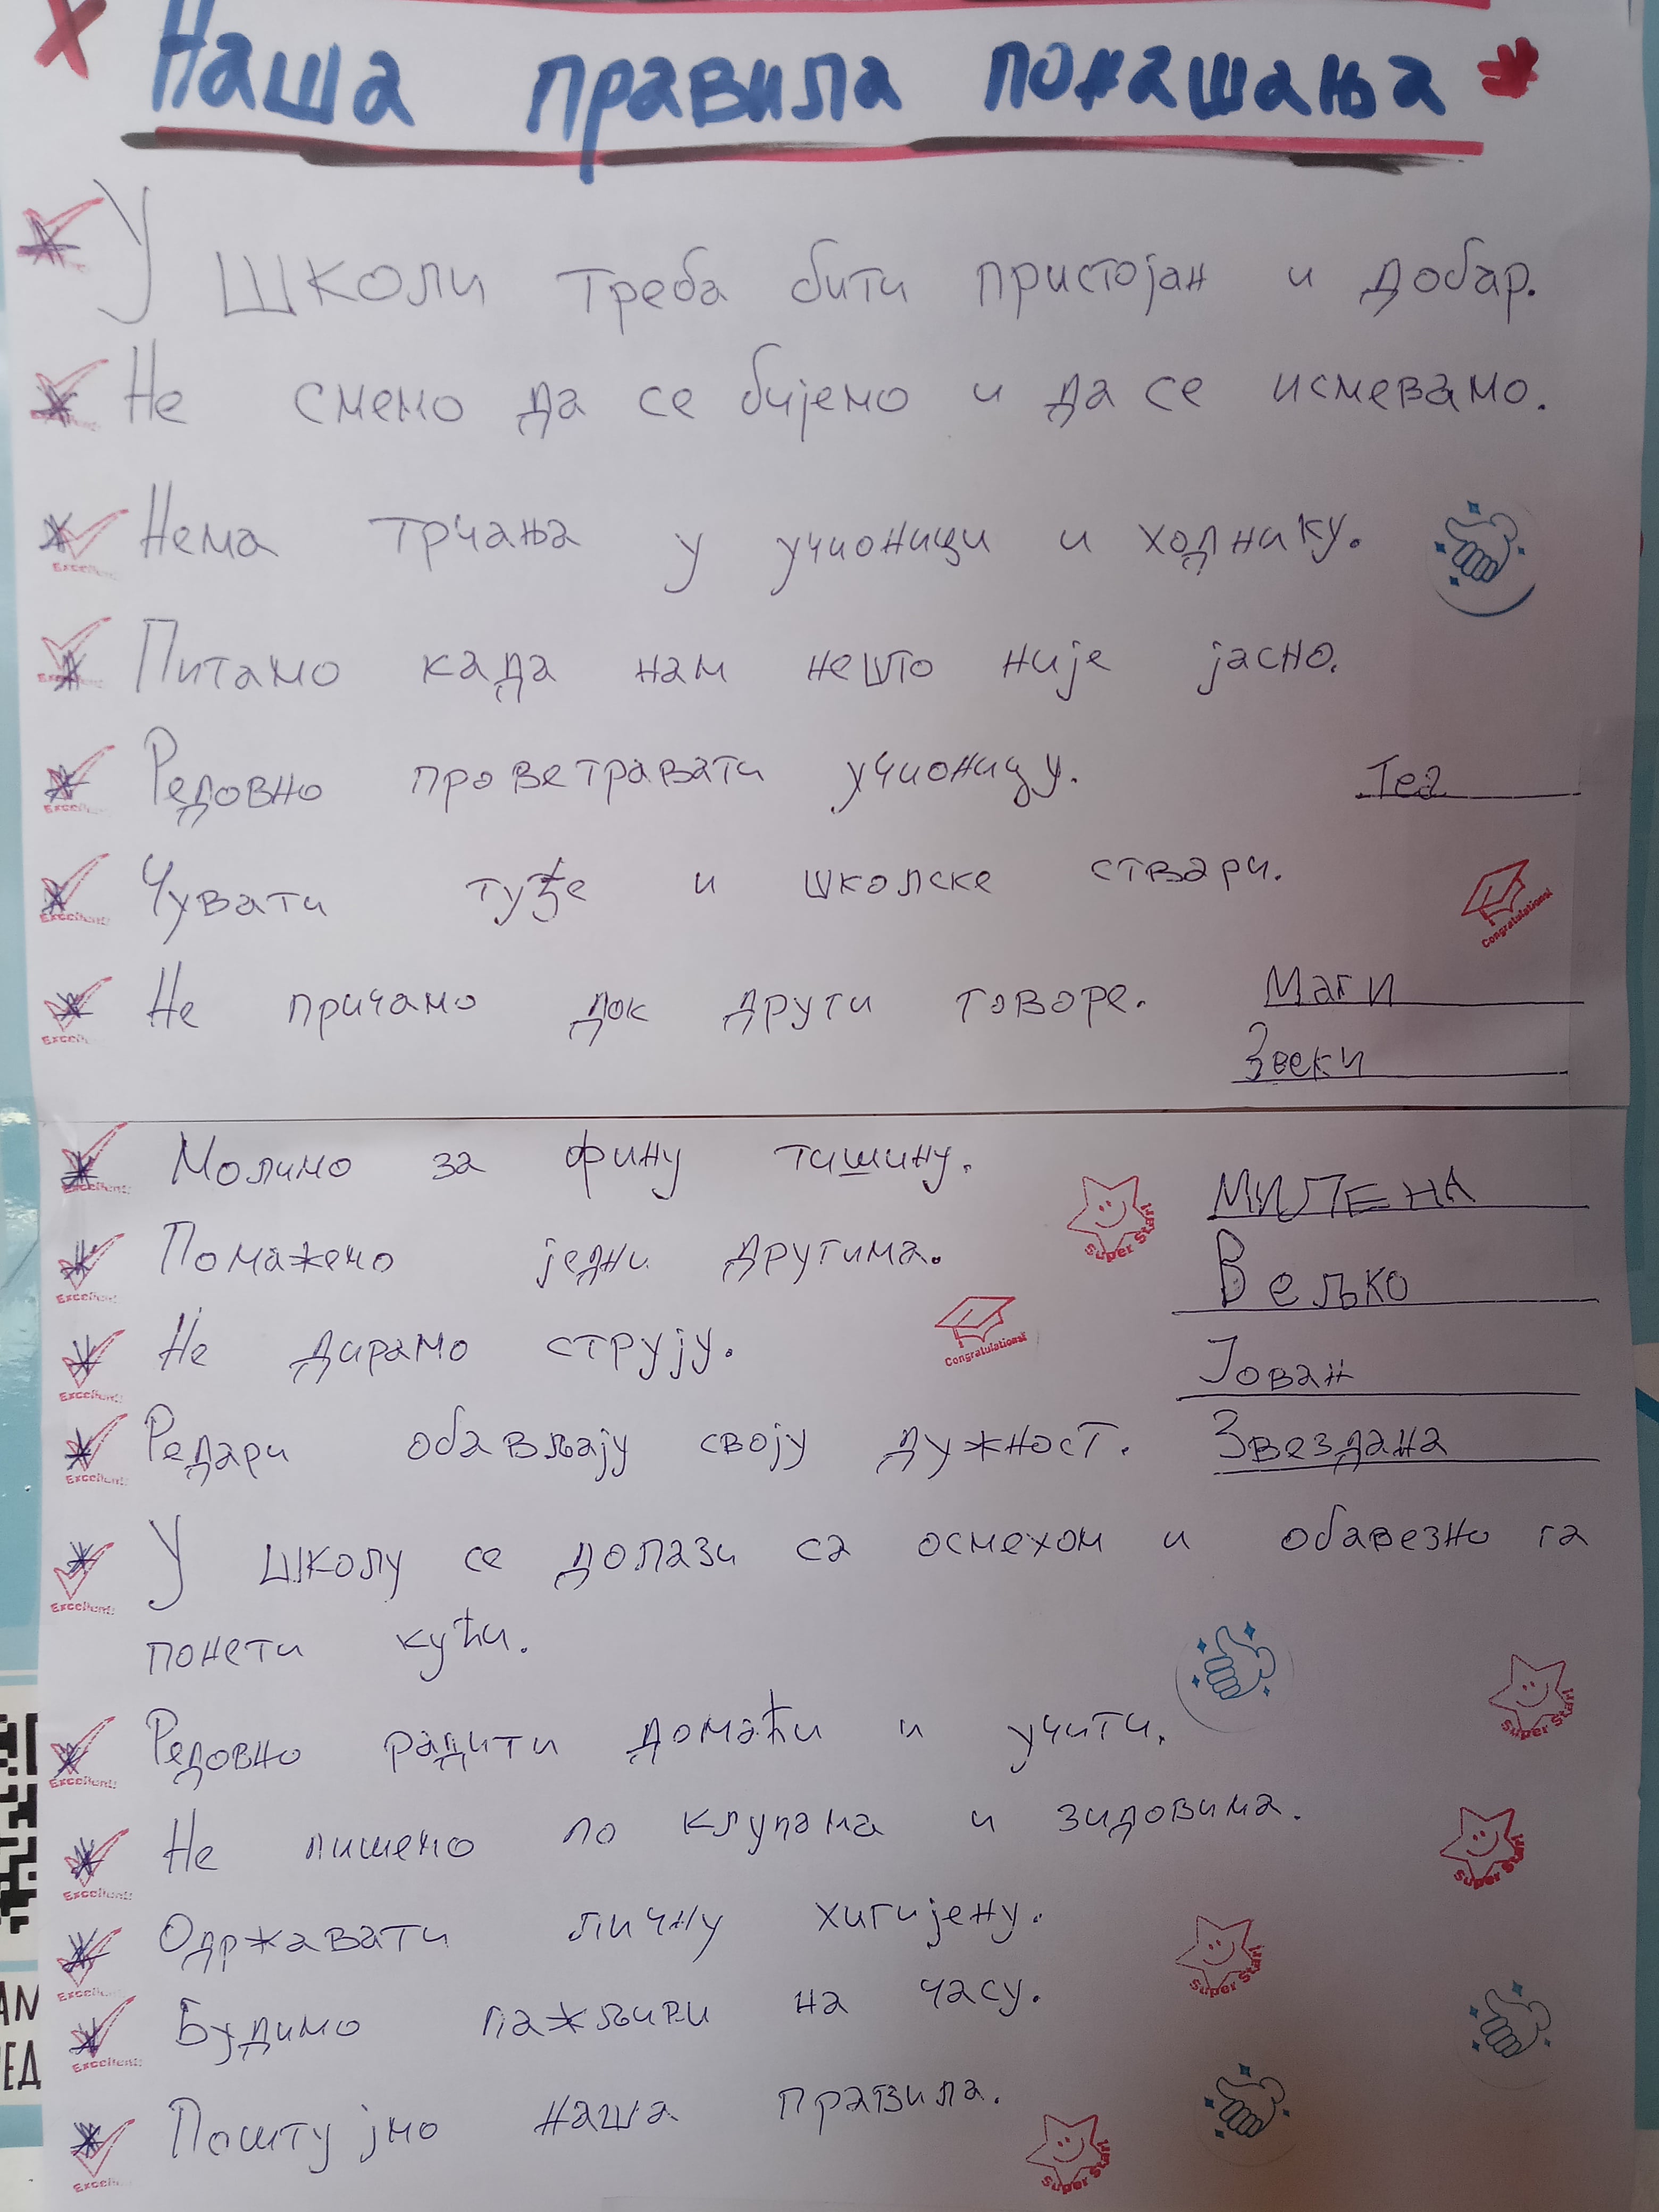 Наша правила понашања
У школи треба бити пристојан и добар.
Не смемо да се бијемо и да се исмевамо.
Нема трчања у учионици и ходнику.
Питамо када нам нешто није јасно.
Редовно проветравати учионицу.
Теа
Чувати туђе и школске ствари.
Congratulations!
Не причамо док други говоре.
Маги
Звеки
Молимо за фину тишину.
МИЛЕНА
Super Star!
Помажемо једни другима.
Вељко
Не дирамо струју.
Congratulations!
Јован
Редари обављају своју дужност.
Звездана
У школу се долази са осмехом и обавезно га
понети кући.
Super Star!
Редовно радити домаћи и учити.
Не пишемо по клупама и зидовима.
Super Star!
Одржавати личну хигијену.
Super Star!
Будимо пажљиви на часу.
Поштујмо наша правила.
Super Star!
Excellent!